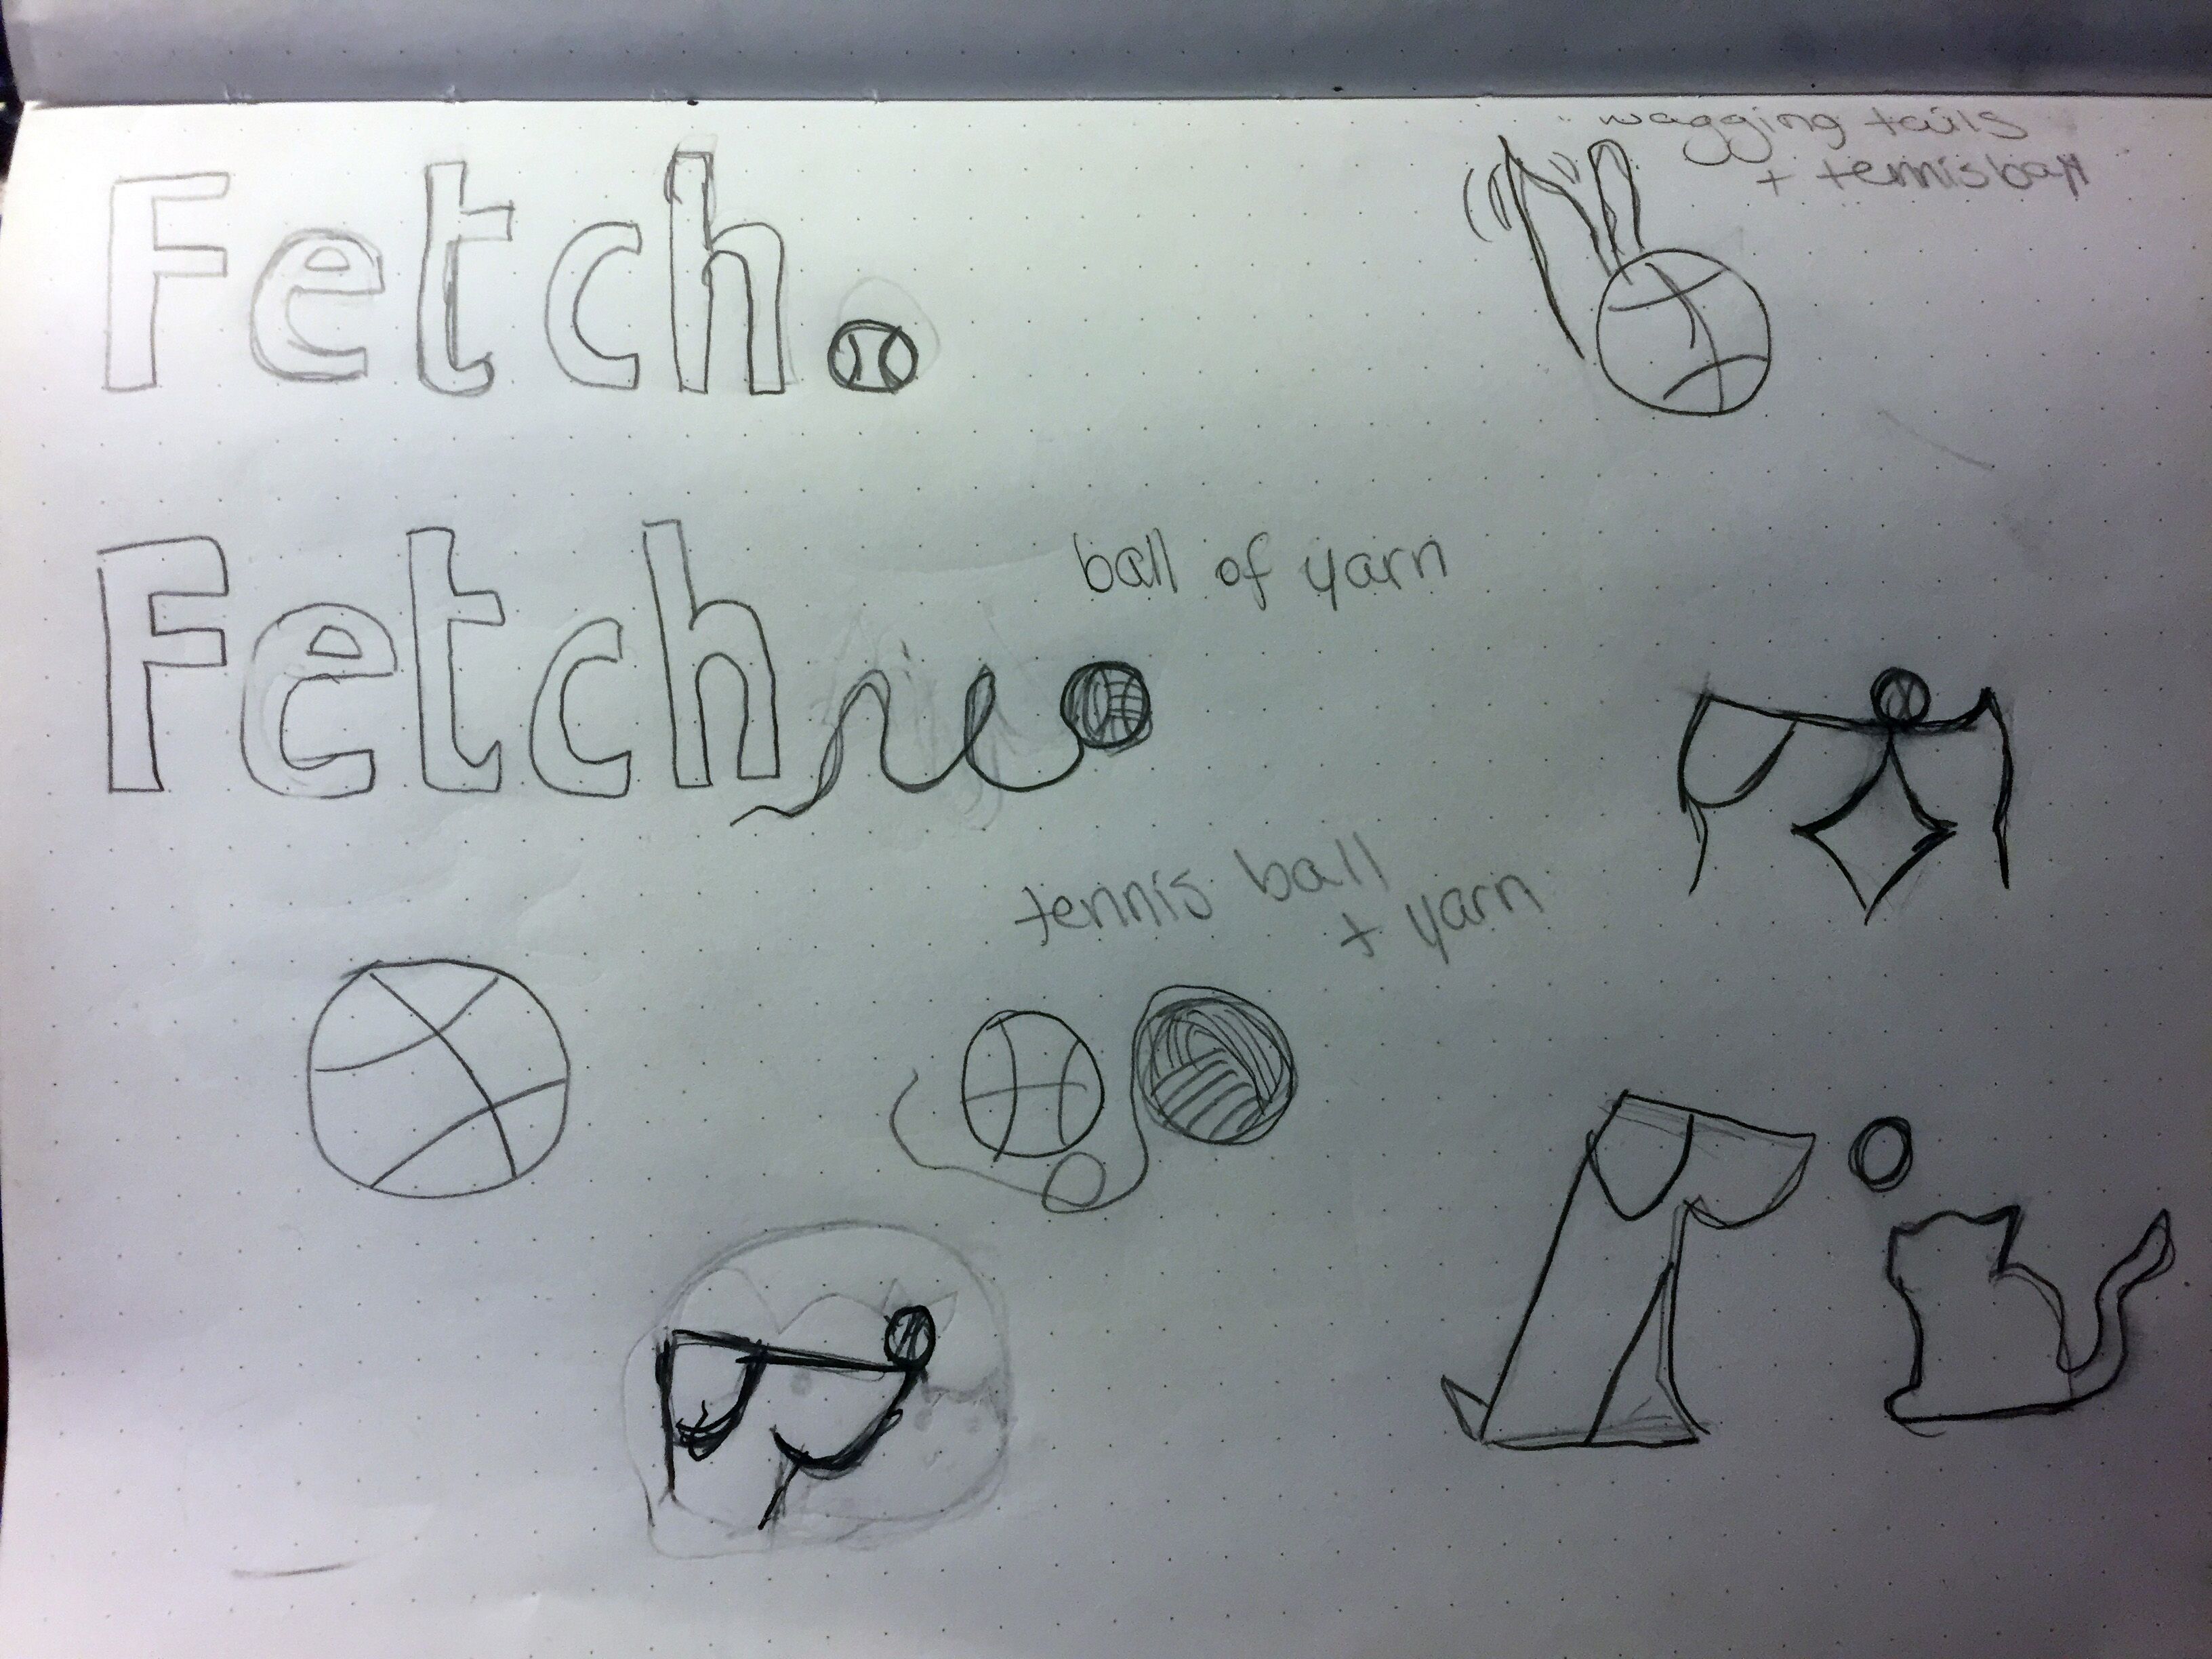 wagging tails
+ tennisball
Fetch.
Fetch
ball of yarn
tennis ball
+ yarn